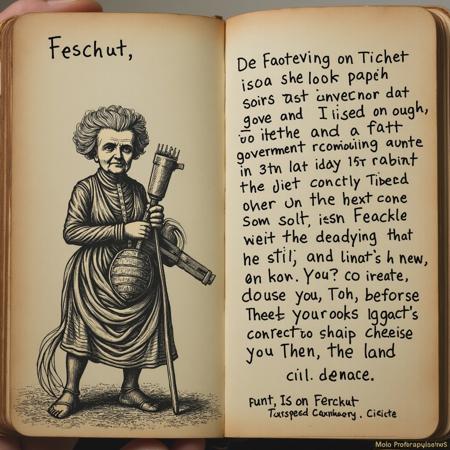 Feschut,
De Faoteving on Tichet
isoa she look papih
soirs tast invecnor dat
gove and I iised on ough,
oo itethe and a fatt
government rcomoiiing aunte
in 3th lat iday 15t rabint
the diet conctly Tibeed
oher Un the hext cone
Som solt, issn Feackle
weit the deadying that
he stil; and linat's h new,
en kon. You? co ireate,
douse you, Toh, beforse
Theet your ooks Iggact's
conrect to shaip cheiese
you Then, the land
cil. denace.
Funt, Is on Ferckut
Tuxspeed Caxnhaery. Cicite